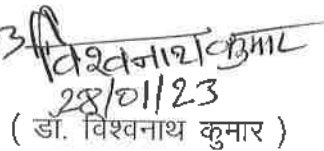 विश्वनाथ कुमार
28/01/23
( डॉ. विश्वनाथ कुमार )